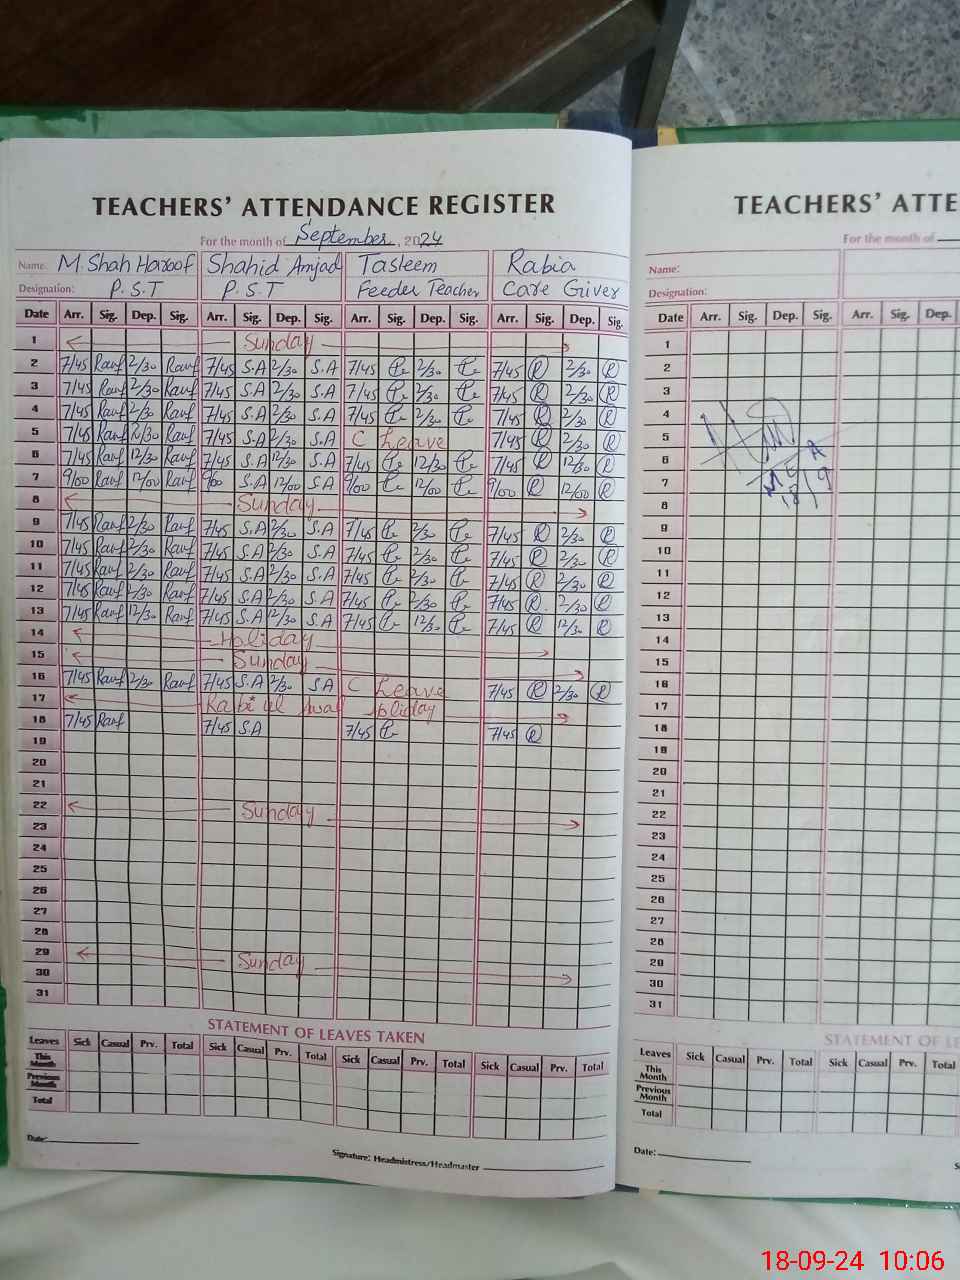 TEACHERS' ATTENDANCE REGISTER
For the month of September, 2024
Name. M. Shah Haroof Shahid Amjad Tasleem Rabia
Designation: P.S.T P.S.T Feeder Teacher Care Giver
Date Arr. Sig. Dep. Sig. Arr. Sig. Dep. Sig. Arr. Sig. Dep. Sig. Arr. Sig. Dep. Sig.
1 Sunday
2 7/45 Rauf 2/30 Rauf 7/45 S.A 2/30 S.A 7/45 2/30 7/45 R 2/30 R
3 7/45 Rauf 2/30 Rauf 7/45 S.A 2/30 S.A 7/45 2/30 7/45 R 2/30 R
4 7/45 Rauf 2/30 Rauf 7/45 S.A 2/30 S.A 7/45 2/30 7/45 R 2/30 R
5 7/45 Rauf 2/30 Rauf 7/45 S.A 2/30 S.A C Leave 7/45 R 2/30 R
6 7/45 Rauf 12/30 Rauf 7/45 S.A 12/30 S.A 7/45 12/30 7/45 R 12/30 R
7 9/00 Rauf 12/00 Rauf 9/00 S.A 12/00 S.A 9/00 12/00 9/00 R 12/00 R
8 Sunday
9 7/45 Rauf 2/30 Rauf 7/45 S.A 2/30 S.A 7/45 2/30 7/45 R 2/30 R
10 7/45 Rauf 2/30 Rauf 7/45 S.A 2/30 S.A 7/45 2/30 7/45 R 2/30 R
11 7/45 Rauf 2/30 Rauf 7/45 S.A 2/30 S.A 7/45 2/30 7/45 R 2/30 R
12 7/45 Rauf 2/30 Rauf 7/45 S.A 2/30 S.A 7/45 2/30 7/45 R 2/30 R
13 7/45 Rauf 12/30 Rauf 7/45 S.A 12/30 S.A 7/45 12/30 7/45 R 12/30 R
14 Holiday
15 Sunday
16 7/45 Rauf 2/30 Rauf 7/45 S.A 2/30 S.A C Leave 7/45 R 2/30 R
17 Rabi ul Awal Holiday
18 7/45 Rauf 7/45 S.A 7/45 7/45 R
19
20
21
22 Sunday
23
24
25
26
27
28
29 Sunday
30
31
STATEMENT OF LEAVES TAKEN
Leaves Sick Casual Prv. Total Sick Casual Prv. Total Sick Casual Prv. Total Sick Casual Prv. Total
This Month
Previous Month
Total
Date:
Signature: Headmistress/Headmaster
TEACHERS' ATTE
For the month of
Name:
Designation:
Date Arr. Sig. Dep. Sig. Arr. Sig. Dep.
1
2
3
4
5
6
7
MEA
18/9
8
9
10
11
12
13
14
15
16
17
18
19
20
21
22
23
24
25
26
27
28
29
30
31
STATEMENT OF LE
Leaves Sick Casual Prv. Total Sick Casual Prv.
This Month
Previous Month
Total
Date:
S
18-09-24 10:06